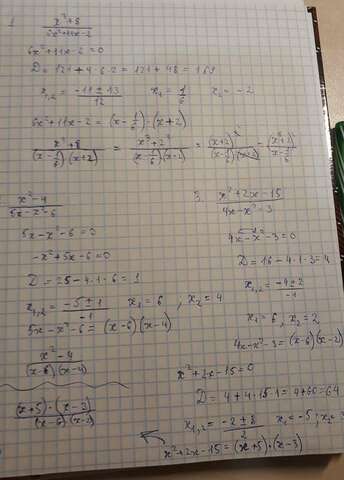 1 x³+8 / 6x²+11x-2
6x²+11x-2=0
D=121+4·6·2=121+48=169
x₁,₂ = -11±13 / 12   x₁=1/6   x₂=-2
6x²+11x-2=(x-1/6)·(x+2)
x³+8 / (x-1/6)(x+2) = x³+2³ / (x-1/6)(x-2) = (x+2)³ / (x-1/6)(x+2) = (x+2)² / x-1/6
x²-4 / 5x-x²-6
5x-x²-6=0
-x²+5x-6=0
D=25-4·1·6=1
x₁,₂ = -5±1 / -1   x₁=6 , x₂=4
5x-x²-6=(x-6)(x-4)
x²-4 / (x-6)(x-4)
3. x²+2x-15 / 4x-x²-3
4x-x²-3=0
D=16-4·1·3=4
x₁,₂ = -4±2 / -1
x₁=6, x₂=2
4x-x²-3=(x-6)(x-2)
x²+2x-15=0
D=4+4·15·1=4+60=64
x₁,₂ = -2±8 / 2   x₁=-5; x₂=3
x²+2x-15=(x+5)·(x-3)
(x+5)·(x-3) / (x-6)(x-2)